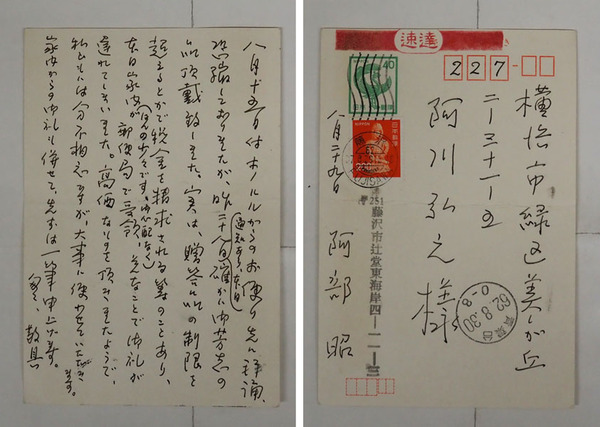 八月十五日付ホノルルからのお便り先に拝誦、
恐縮しておりましたが、昨二十八日確かに御芳志の
通知あり本日
品頂戴致しました。実は、贈答品の制限を
超えるとかで税金を請求される
あり、
(ほんの少々です。御心配なく)
本日家内が郵便局で受領、そんなことで御礼が
遅れてしまいました。高価なものを頂きましたようで、
私どもには分不相応ですが、大事に使わせていただき
ます。
家内からの御礼も併せて、先ずは一筆申上げます。
敬具
速達
227
横浜市緑区美が丘
二ー三十一ー五
阿川弘之様
40
NIPPON
日本郵便
63.8.30
251
藤沢市辻堂東海岸四ー一一ー三
八月二十九日
阿部 昭